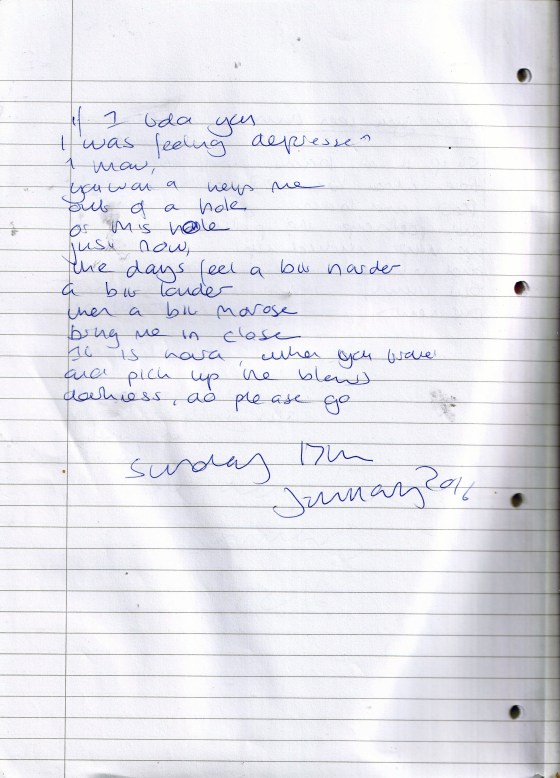 if I told you
I was feeling depressed
I mow,
you won a help me
out of a hole
or this hole
just now,
the days feel a bit harder
a bit louder
then a bit morose
bring me in close
It is hard, when you
and pick up the
darkness, do please go
Sunday 17th
January 2016